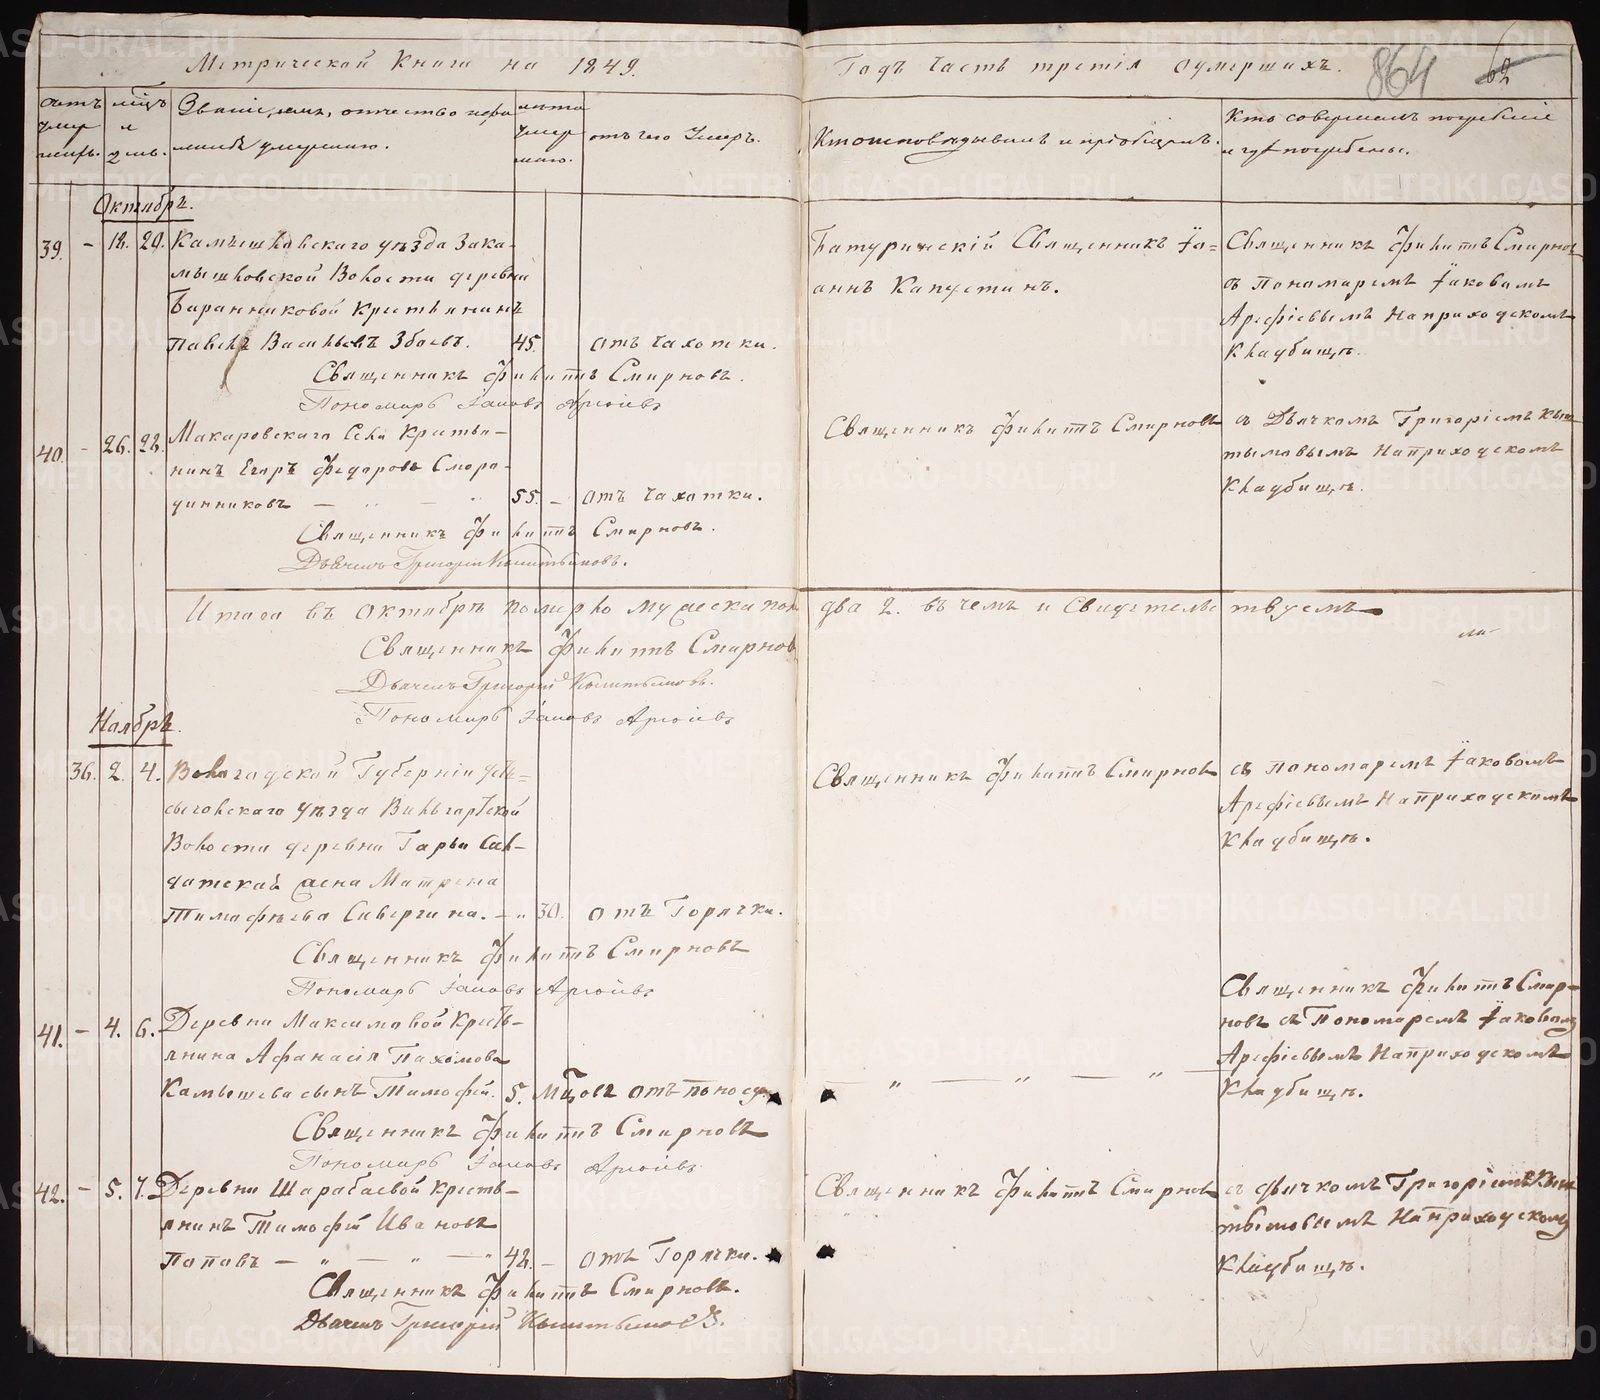 Метрической Книги на 1849.
Годъ Часть третія о умершихъ.
864
62
счетъ умер шихъ.
мѣсцъ и день.
Званіе, имя, отчество и фамилія умершаго.
лѣта умер шаго.
отъ чего умеръ.
Кто исповѣдывалъ и пріобщалъ.
Кто совершалъ погребеніе
и гдѣ погребены.
Октябрь.
39. - 18. 20. Камышловскаго уѣзда Зака-
мышловской Волости деревни
Баранниковой Крестьянинъ
Павелъ Васильевъ Збоевъ. 45. отъ чахотки.
Священникъ Филиппъ Смирновъ.
Пономарь Іаковъ Арефьевъ
Батуринскій Священникъ Іо=
аннъ Капустинъ.
Священникъ Филиппъ Смирновъ
съ Пономаремъ Іаковомъ
Арефіевымъ На приходскомъ
Кладбищѣ.
40. - 26. 28. Макаровскаго Села Крестья-
нинъ Егоръ Федоровъ Сморо-
динниковъ 55. - отъ чахотки.
Священникъ Филиппъ Смирновъ.
Дьячекъ Григорій Кыштымовъ.
Священникъ Филиппъ Смирновъ
съ Дьячкомъ Григоріемъ Кыш-
тымовымъ На приходскомъ
Кладбищѣ.
Итого въ Октябрѣ померло мужеска пола два 2. въ чемъ и Свидѣтельствуемъ
Священникъ Филиппъ Смирновъ
Дьячекъ Григорій Кыштымовъ.
Пономарь Іаковъ Арефьевъ
Ноябрь.
36. 2. 4. Вологодской Губерніи Усть=
сысольскаго Уѣзда Вильгортской
Волости деревни Гарьи Сол-
датская жена Матрена
Тимофѣева Сивергина. - " 30. отъ Горячки.
Священникъ Филиппъ Смирновъ
Пономарь Іаковъ Арефьевъ
Священникъ Филиппъ Смирновъ
съ пономаремъ Іаковомъ
Арефіевымъ На приходскомъ
Кладбищѣ.
41. - 4. 6. Деревни Максимовой Кресть-
янина Афанасія Пахомова
Камышева сынъ Тимофей. 5. мѣцовъ отъ поноса.
Священникъ Филиппъ Смирновъ
Пономарь Іаковъ Арефьевъ
— " — " — " —
Священникъ Филиппъ Смир=
новъ съ Пономаремъ Іаковомъ
Арефіевымъ На приходскомъ
Кладбищѣ.
42. - 5. 7. Деревни Шарабаевой Кресть-
янинъ Тимофей Ивановъ
Поповъ — " — " — " 42. - отъ Горячки.
Священникъ Филиппъ Смирновъ.
Дьячекъ Григорій Кыштымовъ.
Священникъ Филиппъ Смирновъ
съ дьячкомъ Григоріемъ Кыш
тымовымъ На приходскомъ
Кладбищѣ.
METRIKI.GASO-URAL.RU